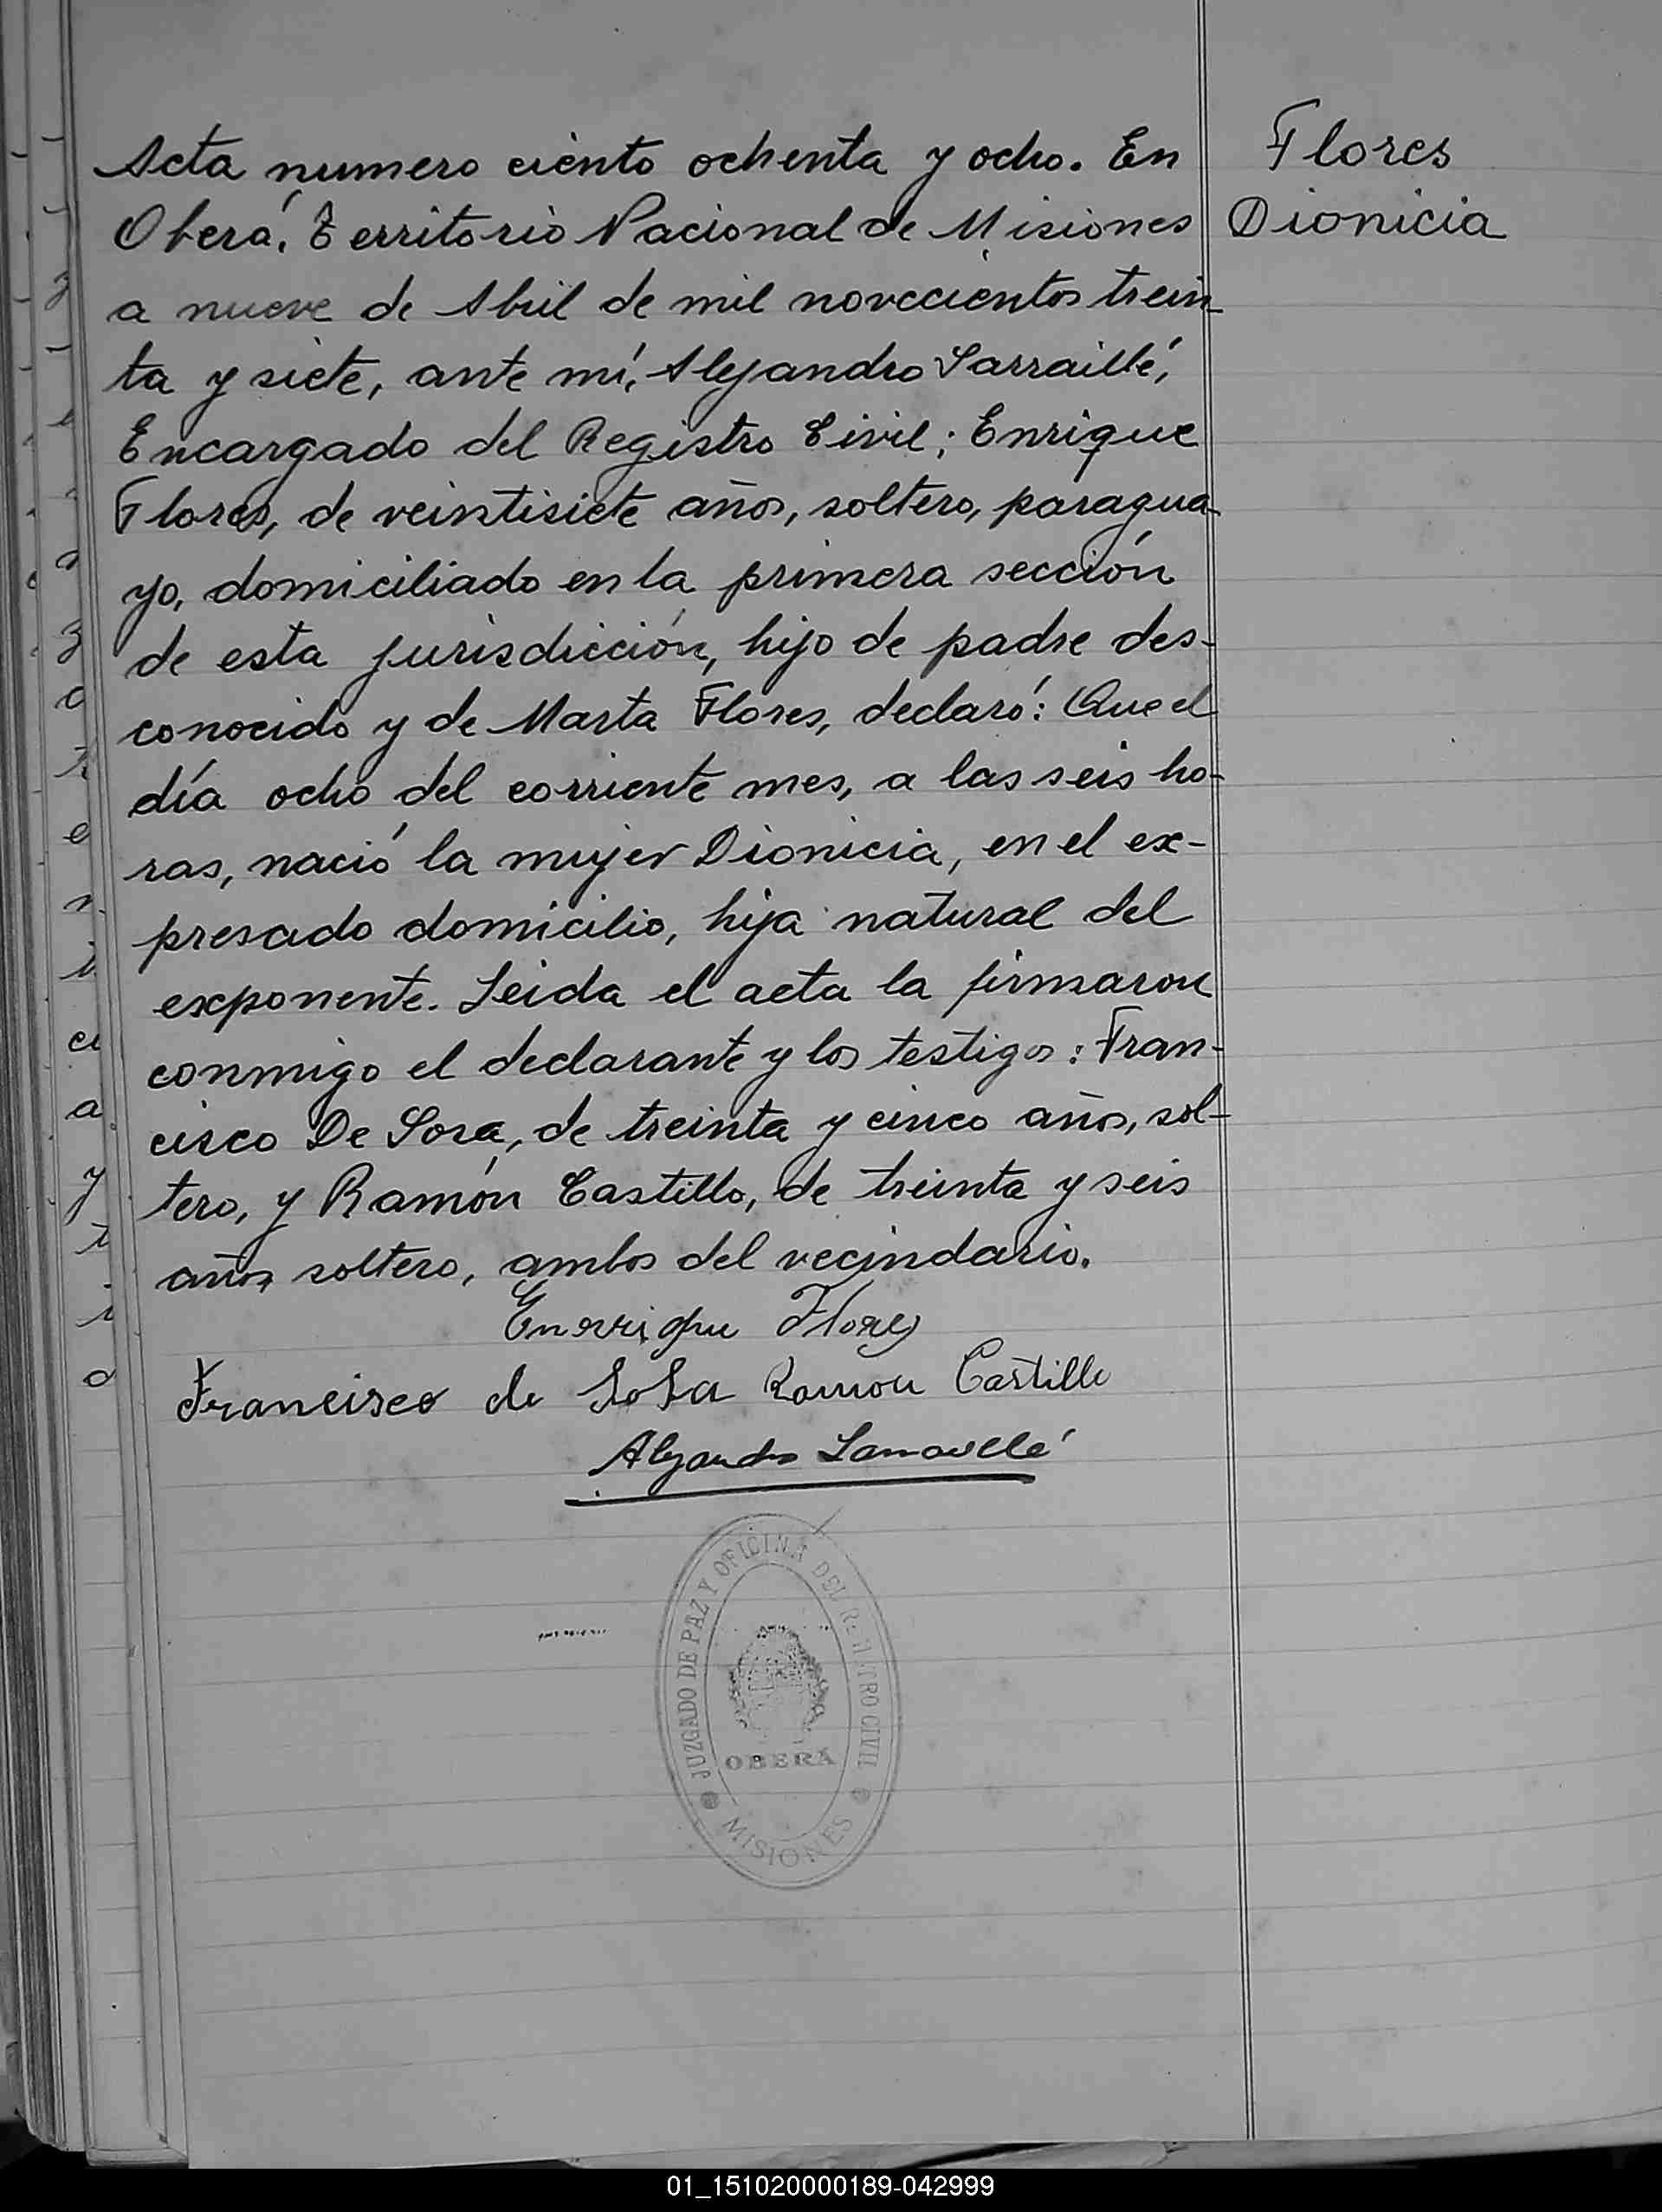 Acta numero ciento ochenta y ocho. En
Oberá, Territorio Nacional de Misiones
a nueve de Abril de mil novecientos trein-
ta y siete, ante mí, Alejandro Sarraillé,
Encargado del Registro Civil; Enrique
Flores, de veintisiete años, soltero, paragua-
yo, domiciliado en la primera sección
de esta jurisdicción, hijo de padre des-
conocido y de Marta Flores, declaró: Que el
día ocho del corriente mes, a las seis ho-
ras, nació la mujer Dionicia, en el ex-
presado domicilio, hija natural del
exponente. Leida el acta la firmaron
conmigo el declarante y los testigos: Fran-
cisco De Sosa, de treinta y cinco años, sol-
tero, y Ramón Castillo, de treinta y seis
años, soltero, ambos del vecindario.
Flores
Dionicia
Enrrique Flores
Francisco de Sosa Ramon Castillo
Alejandro Sarraillé
JUZGADO DE PAZ Y OFICINA DEL REGISTRO CIVIL
OBERÁ
MISIONES
01_151020000189-042999